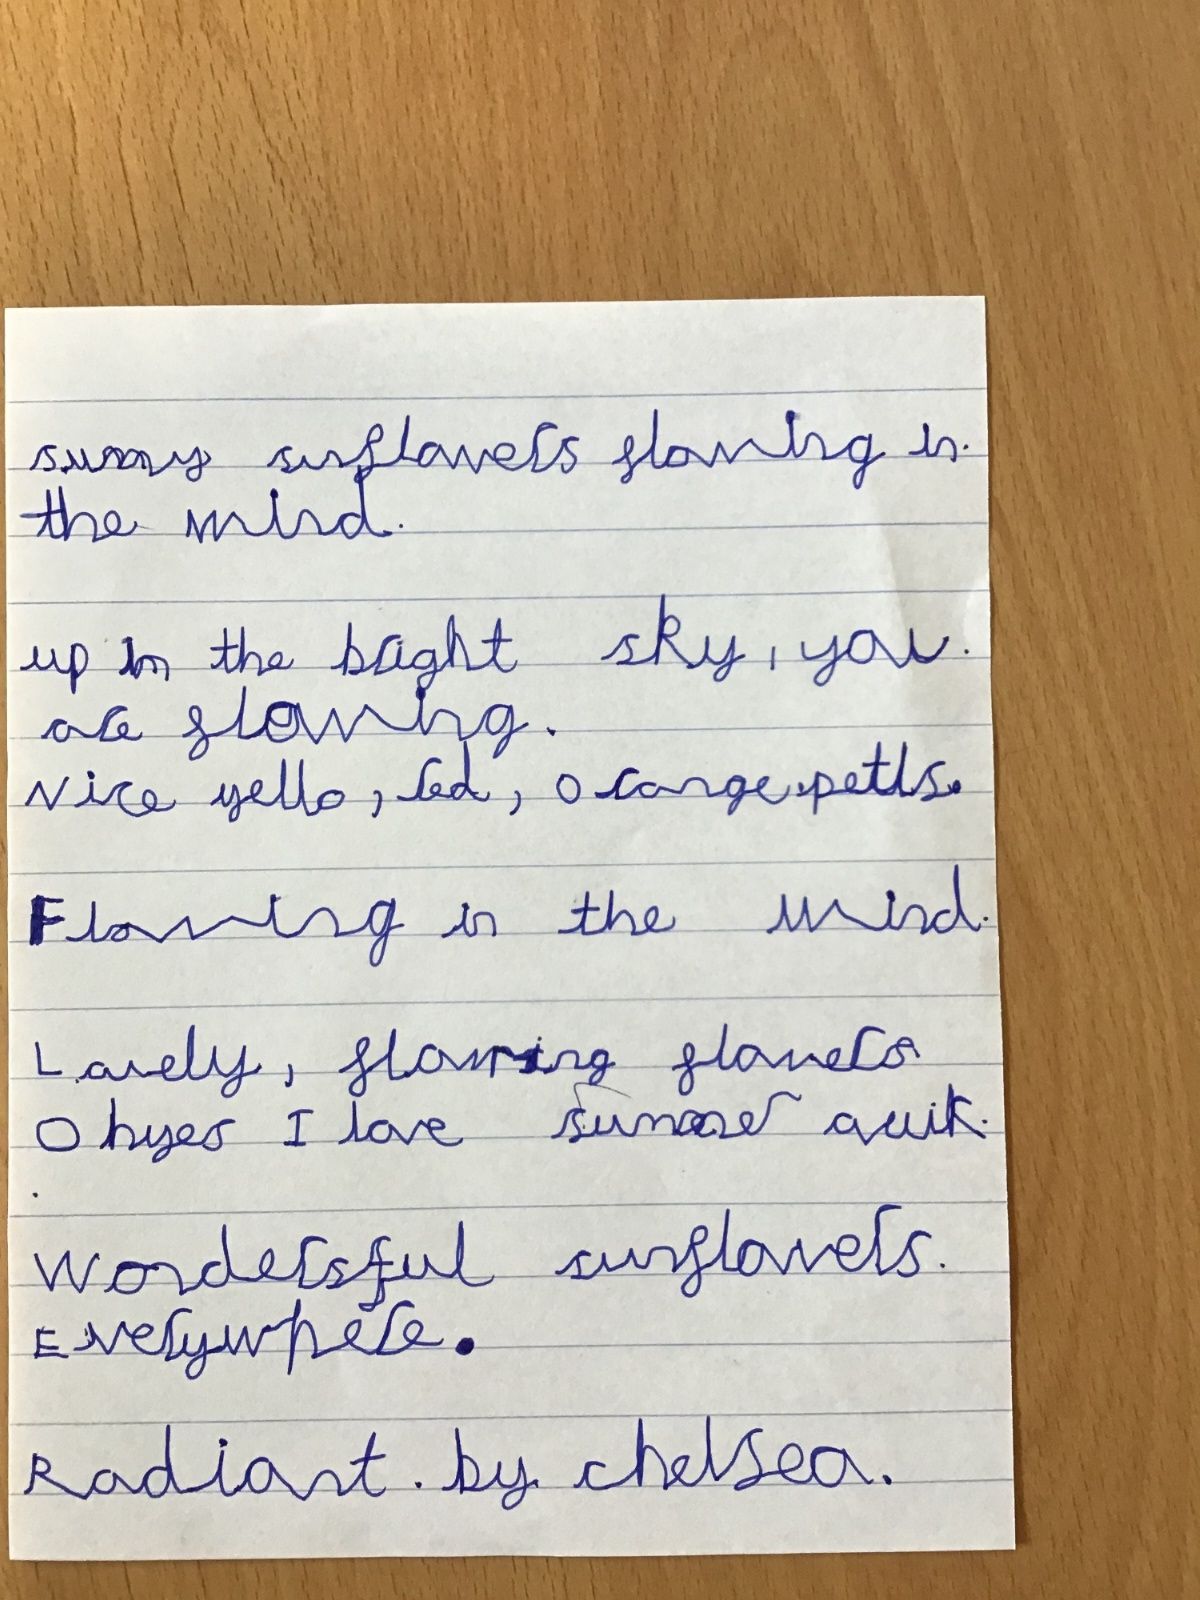 sunny sunflowers flowing in.
the wind.
up in the bright sky, you.
are flowing.
Nice yello, red, orange petls.
Flowing in the wind.
Lovely, flowing flowers
Oh yes I love summer
Wondersful sunflowers.
Everywhere.
Radiant. by chelsea.